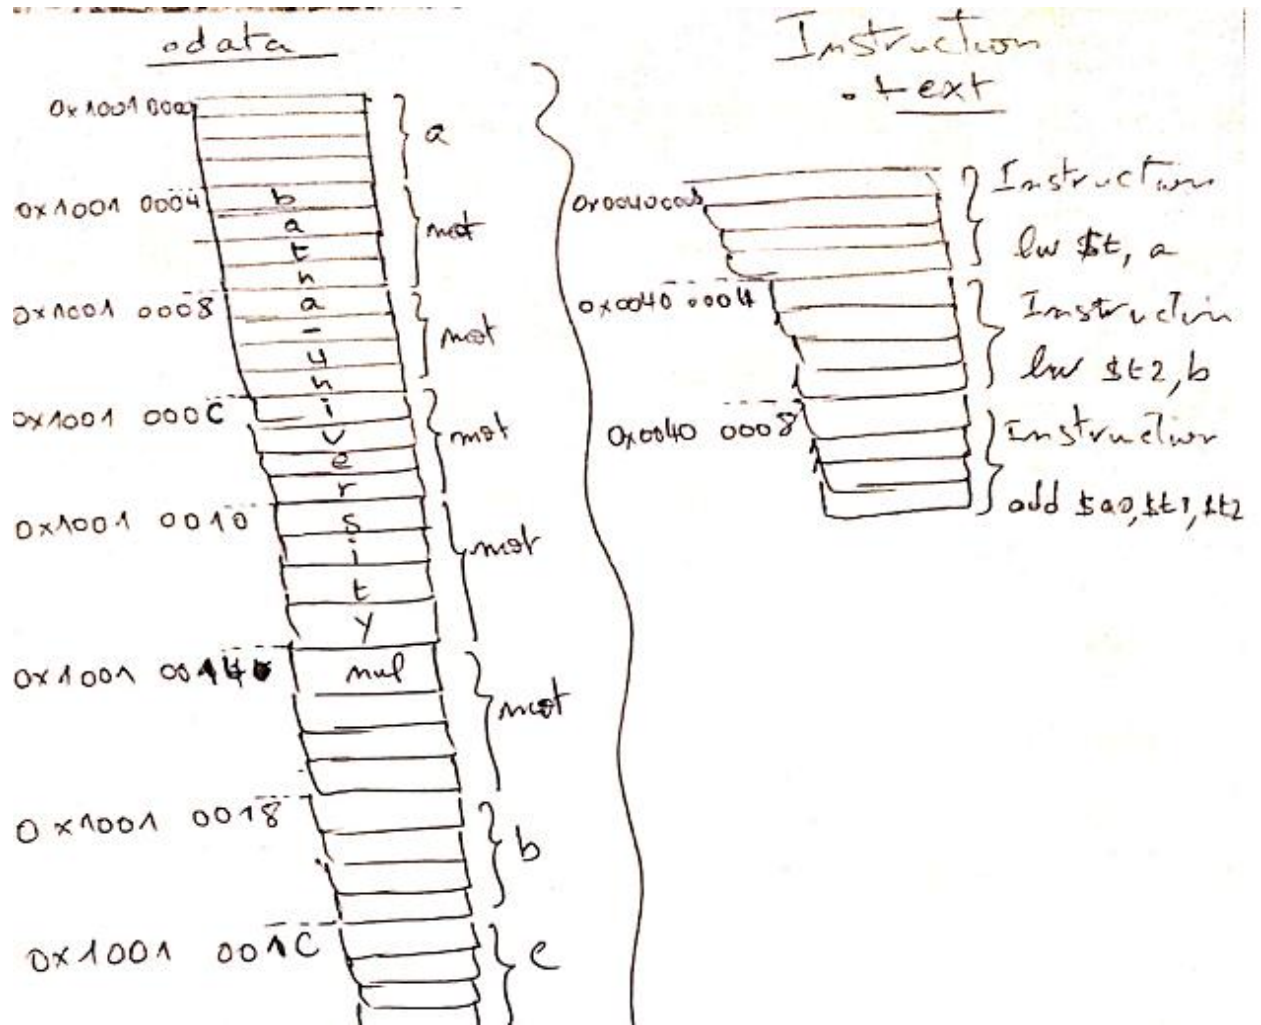 .data
0x1001 0000
a
0x1001 0004
b
a
t
n
mot
0x1001 0008
a
-
u
n
mot
0x1001 000C
i
v
e
r
mot
0x1001 0010
s
i
t
y
mot
0x1001 0014
nul
mot
0x1001 0018
b
0x1001 001C
c
Instruction
.text
Instruction
lw $t, a
0x0040 0004
Instruction
lw $t2, b
0x0040 0008
Instruction
add $a0, $t1, $t2